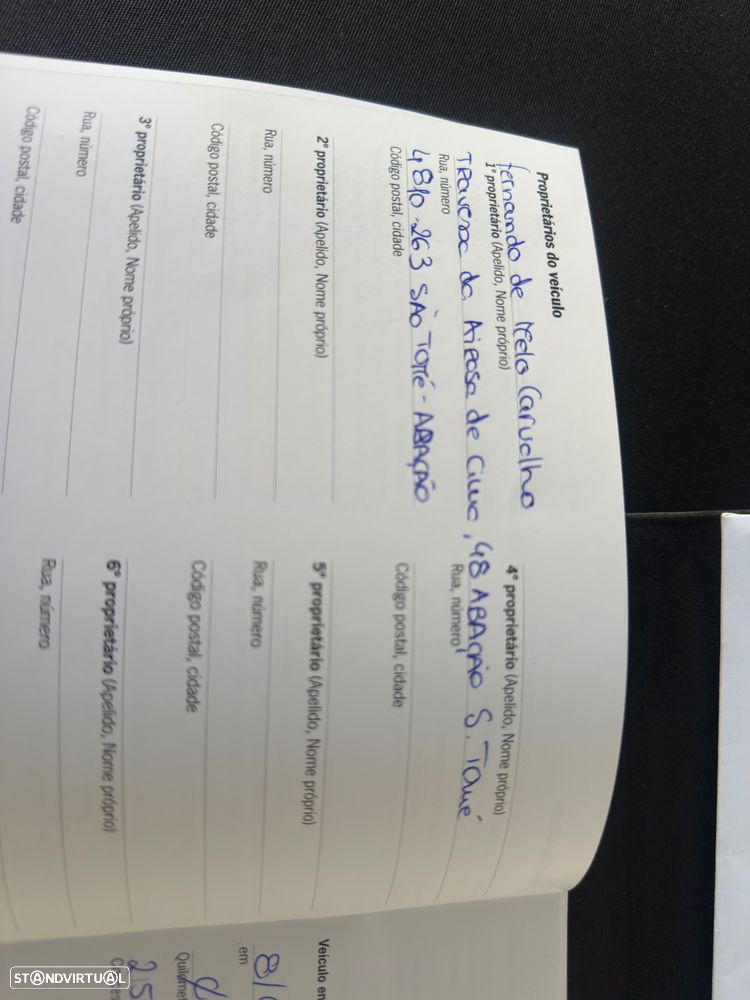 Proprietários do veículo
Fernando de Melo Carvalho
1º proprietário (Apelido, Nome próprio)
Travessa da Aireosa de Cima, 48 ABAÇÃO S. Tomé
Rua, número
4810-263 SÃO TOMÉ - ABAÇÃO
Código postal, cidade
2º proprietário (Apelido, Nome próprio)
Rua, número
Código postal, cidade
3º proprietário (Apelido, Nome próprio)
Rua, número
Código postal, cidade
4º proprietário (Apelido, Nome próprio)
Rua, número
Código postal, cidade
5º proprietário (Apelido, Nome próprio)
Rua, número
Código postal, cidade
6º proprietário (Apelido, Nome próprio)
Rua, número
Veículo en
8/
em
Quilómet
25
STANDVIRTUAL